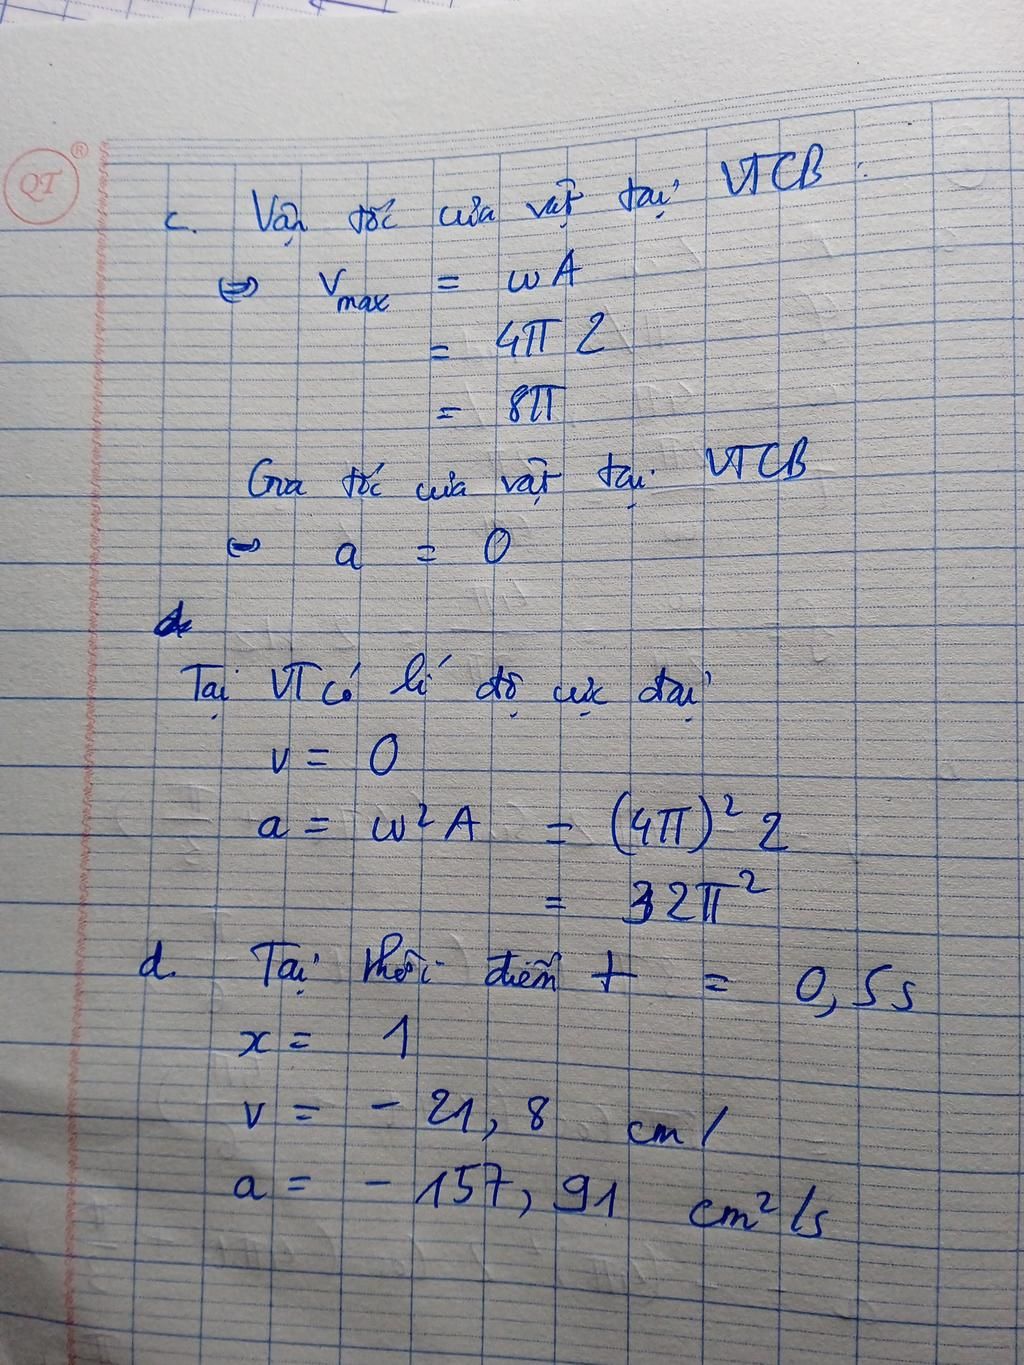 QT ®
c. Vận tốc của vật tại VTCB :
⇔ Vmax = ωA
= 4π 2
= 8π
Gia tốc của vật tại VTCB
⇔ a = 0
Tại VT có li độ cực đại
v = 0
a = ω²A = (4π)² 2
= 32π²
d. Tại thời điểm t = 0,5s
x = 1
v = - 21,8 cm/
a = - 157,91 cm²/s